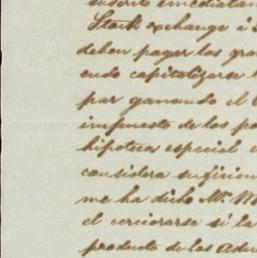 suscrito inmediatam
Stock exchange á
deben pagar los gra
cudo capitalizarse
par ganando el
impuesto de los po
hipoteca especial
considera suficien
me ha dicho Mr. M
el cerciorarse si la
producto de las Adu